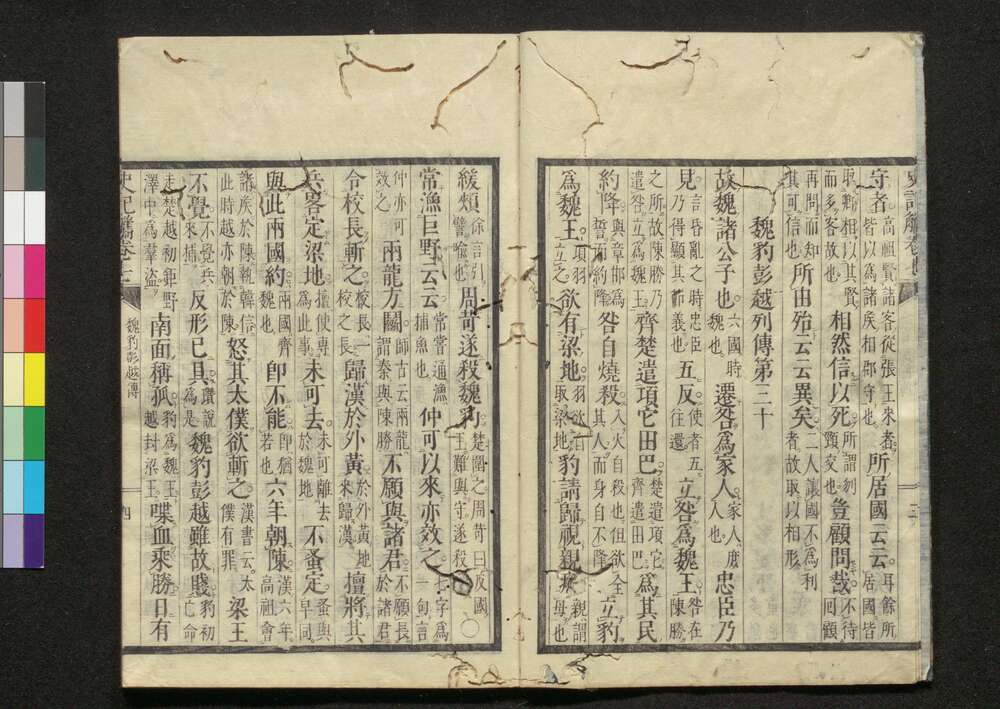 守者高祖賢諸客從張王來者皆以爲諸矦相郡守也所居國云云耳餘所居國皆
取卿相以其賢而多客故也相然信以死所謂刎頸交也豈顧問哉不待回顧
再問而知其可信也所由殆云云異矣二人讓國不爲利者故取以相形
魏豹彭越列傳第三十
故魏諸公子也六國時魏也遷咎爲家人家人庶人也忠臣乃
見言昏亂之時忠臣乃得顯其節義也五反使者五往還立咎爲魏王咎在陳勝
之所故陳勝乃遣咎立爲魏王齊楚遣項它田巴楚遣項它齊遣田巴爲其民
約降與章邯爲誓而約降咎自燒殺入火自殺也但欲全其人而身自不降立豹
爲魏王項羽立之欲有梁地羽欲自取梁地豹請歸視親疾親謂母也
緩頰徐言引譬喩也周苛遂殺魏豹楚圍之周苛曰反國王難與守遂殺○
常漁巨野云云常嘗通漁捕魚也仲可以來亦效之七字爲一句言
仲亦可效之兩龍方鬪師古云兩龍謂秦與陳勝不願與諸君不願長於諸君
令校長斬之校長一校之長歸漢於外黃於外黃地來歸漢擅將其
兵畧定梁地擅使專爲此事未可去未可離去於魏地不蚤定蚤與早同
與此兩國約兩國齊魏也卽不能卽猶若也六年朝陳漢六年高祖會
諸矦於陳執韓信此時越亦朝於陳怒其太僕欲斬之漢書云太僕有罪梁王
不覺不覺兵來捕反形已具瓚說爲是魏豹彭越雖故賤豹初亡命
走楚越初鉅野澤中爲羣盜南面稱孤豹爲魏王越封梁王喋血乘勝日有
魏豹彭越傳 四